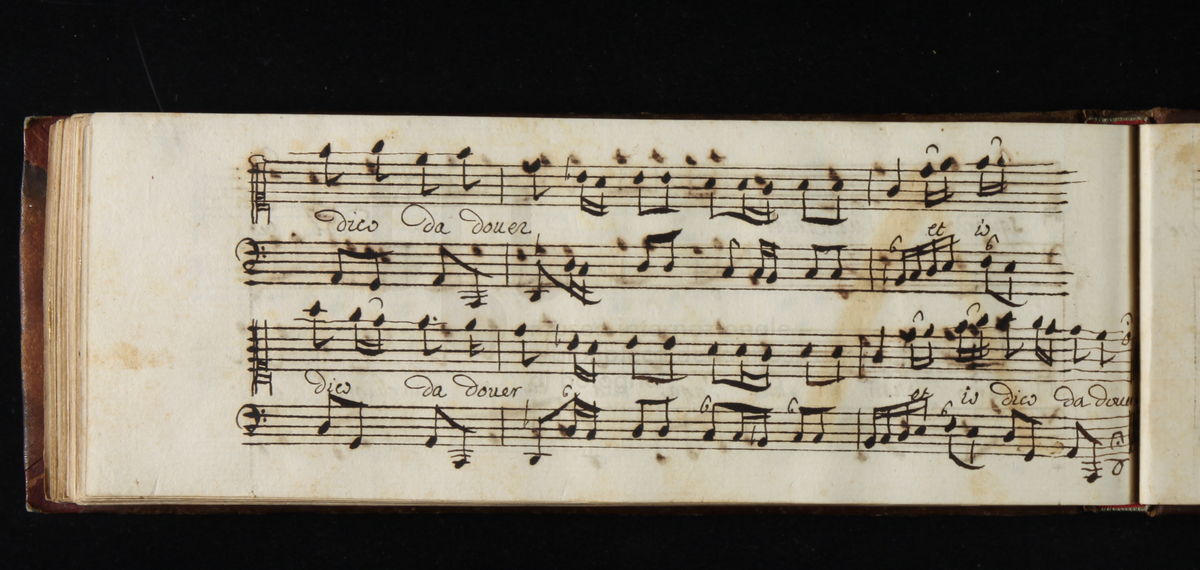 dico da douer et io
6 6
dico da douer et io dico da douer
6 6 6 6